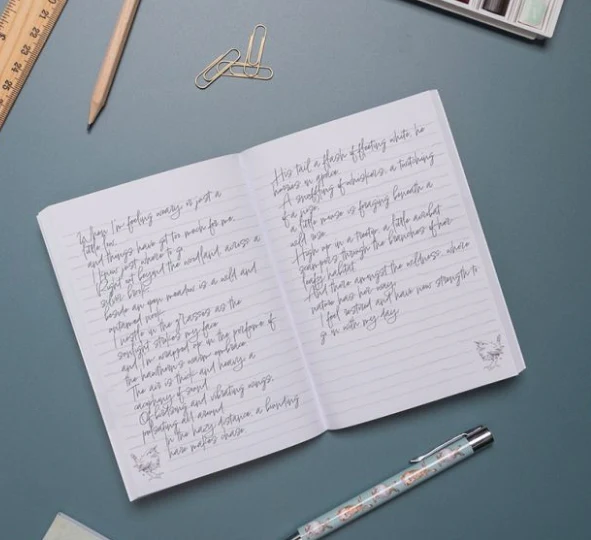 When I'm feeling weary or just a
little low,
and things have got too much for me,
I know just where to go.
Right out beyond the woodland across a
silver brook,
beside an open meadow is a wild and
untamed nook.
I nestle in the grasses as the
sunlight strokes my face
and I'm wrapped up in the perfume of
the hawthorn's warm embrace.
The air is thick and heavy, a
cacophony of sound
Of buzzing and vibrating wings,
pulsating all around.
In the hazy distance, a bounding
hare makes chase
His tail a flash of fleeting white, he
bounces in space.
A snuffling of whiskers, a twitching
of a nose
a little mouse is foraging beneath a
wild rose.
High up in a treetop a little acrobat
scampers through the branches of her
leafy habitat
And there amongst the wildness, where
nature has her way
I feel restored and have new strength to
go on with my day.
25
24
23
22
21